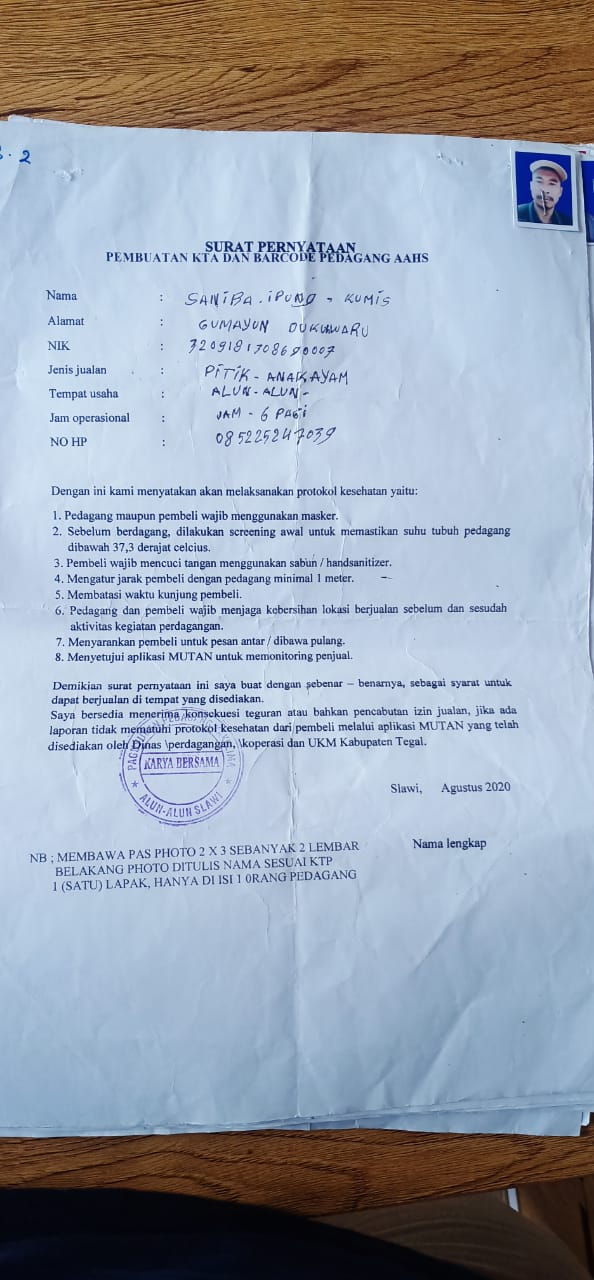 . 2
SURAT PERNYATAAN
PEMBUATAN KTA DAN BARCODE PEDAGANG AAHS
Nama : SANIBA . IPUNG - KUMIS
Alamat : GUMAYUN DUKUHWARU
NIK : 3209181708690007
Jenis jualan : PITIK - ANAK AYAM
Tempat usaha : ALUN - ALUN -
Jam operasional : JAM - 6 PAGI
NO HP : 085225247039
Dengan ini kami menyatakan akan melaksanakan protokol kesehatan yaitu:
1. Pedagang maupun pembeli wajib menggunakan masker.
2. Sebelum berdagang, dilakukan screening awal untuk memastikan suhu tubuh pedagang
dibawah 37,3 derajat celcius.
3. Pembeli wajib mencuci tangan menggunakan sabun / handsanitizer.
4. Mengatur jarak pembeli dengan pedagang minimal 1 meter.
5. Membatasi waktu kunjung pembeli.
6. Pedagang dan pembeli wajib menjaga kebersihan lokasi berjualan sebelum dan sesudah
aktivitas kegiatan perdagangan.
7. Menyarankan pembeli untuk pesan antar / dibawa pulang.
8. Menyetujui aplikasi MUTAN untuk memonitoring penjual.
Demikian surat pernyataan ini saya buat dengan sebenar – benarnya, sebagai syarat untuk
dapat berjualan di tempat yang disediakan.
Saya bersedia menerima konsekuesi teguran atau bahkan pencabutan izin jualan, jika ada
laporan tidak mematuhi protokol kesehatan dari pembeli melalui aplikasi MUTAN yang telah
disediakan oleh Dinas \perdagangan, \koperasi dan UKM Kabupaten Tegal.
KARYA BERSAMA
ALUN-ALUN SLAWI
Slawi, Agustus 2020
Nama lengkap
NB ; MEMBAWA PAS PHOTO 2 X 3 SEBANYAK 2 LEMBAR
BELAKANG PHOTO DITULIS NAMA SESUAI KTP
1 (SATU) LAPAK, HANYA DI ISI 1 0RANG PEDAGANG